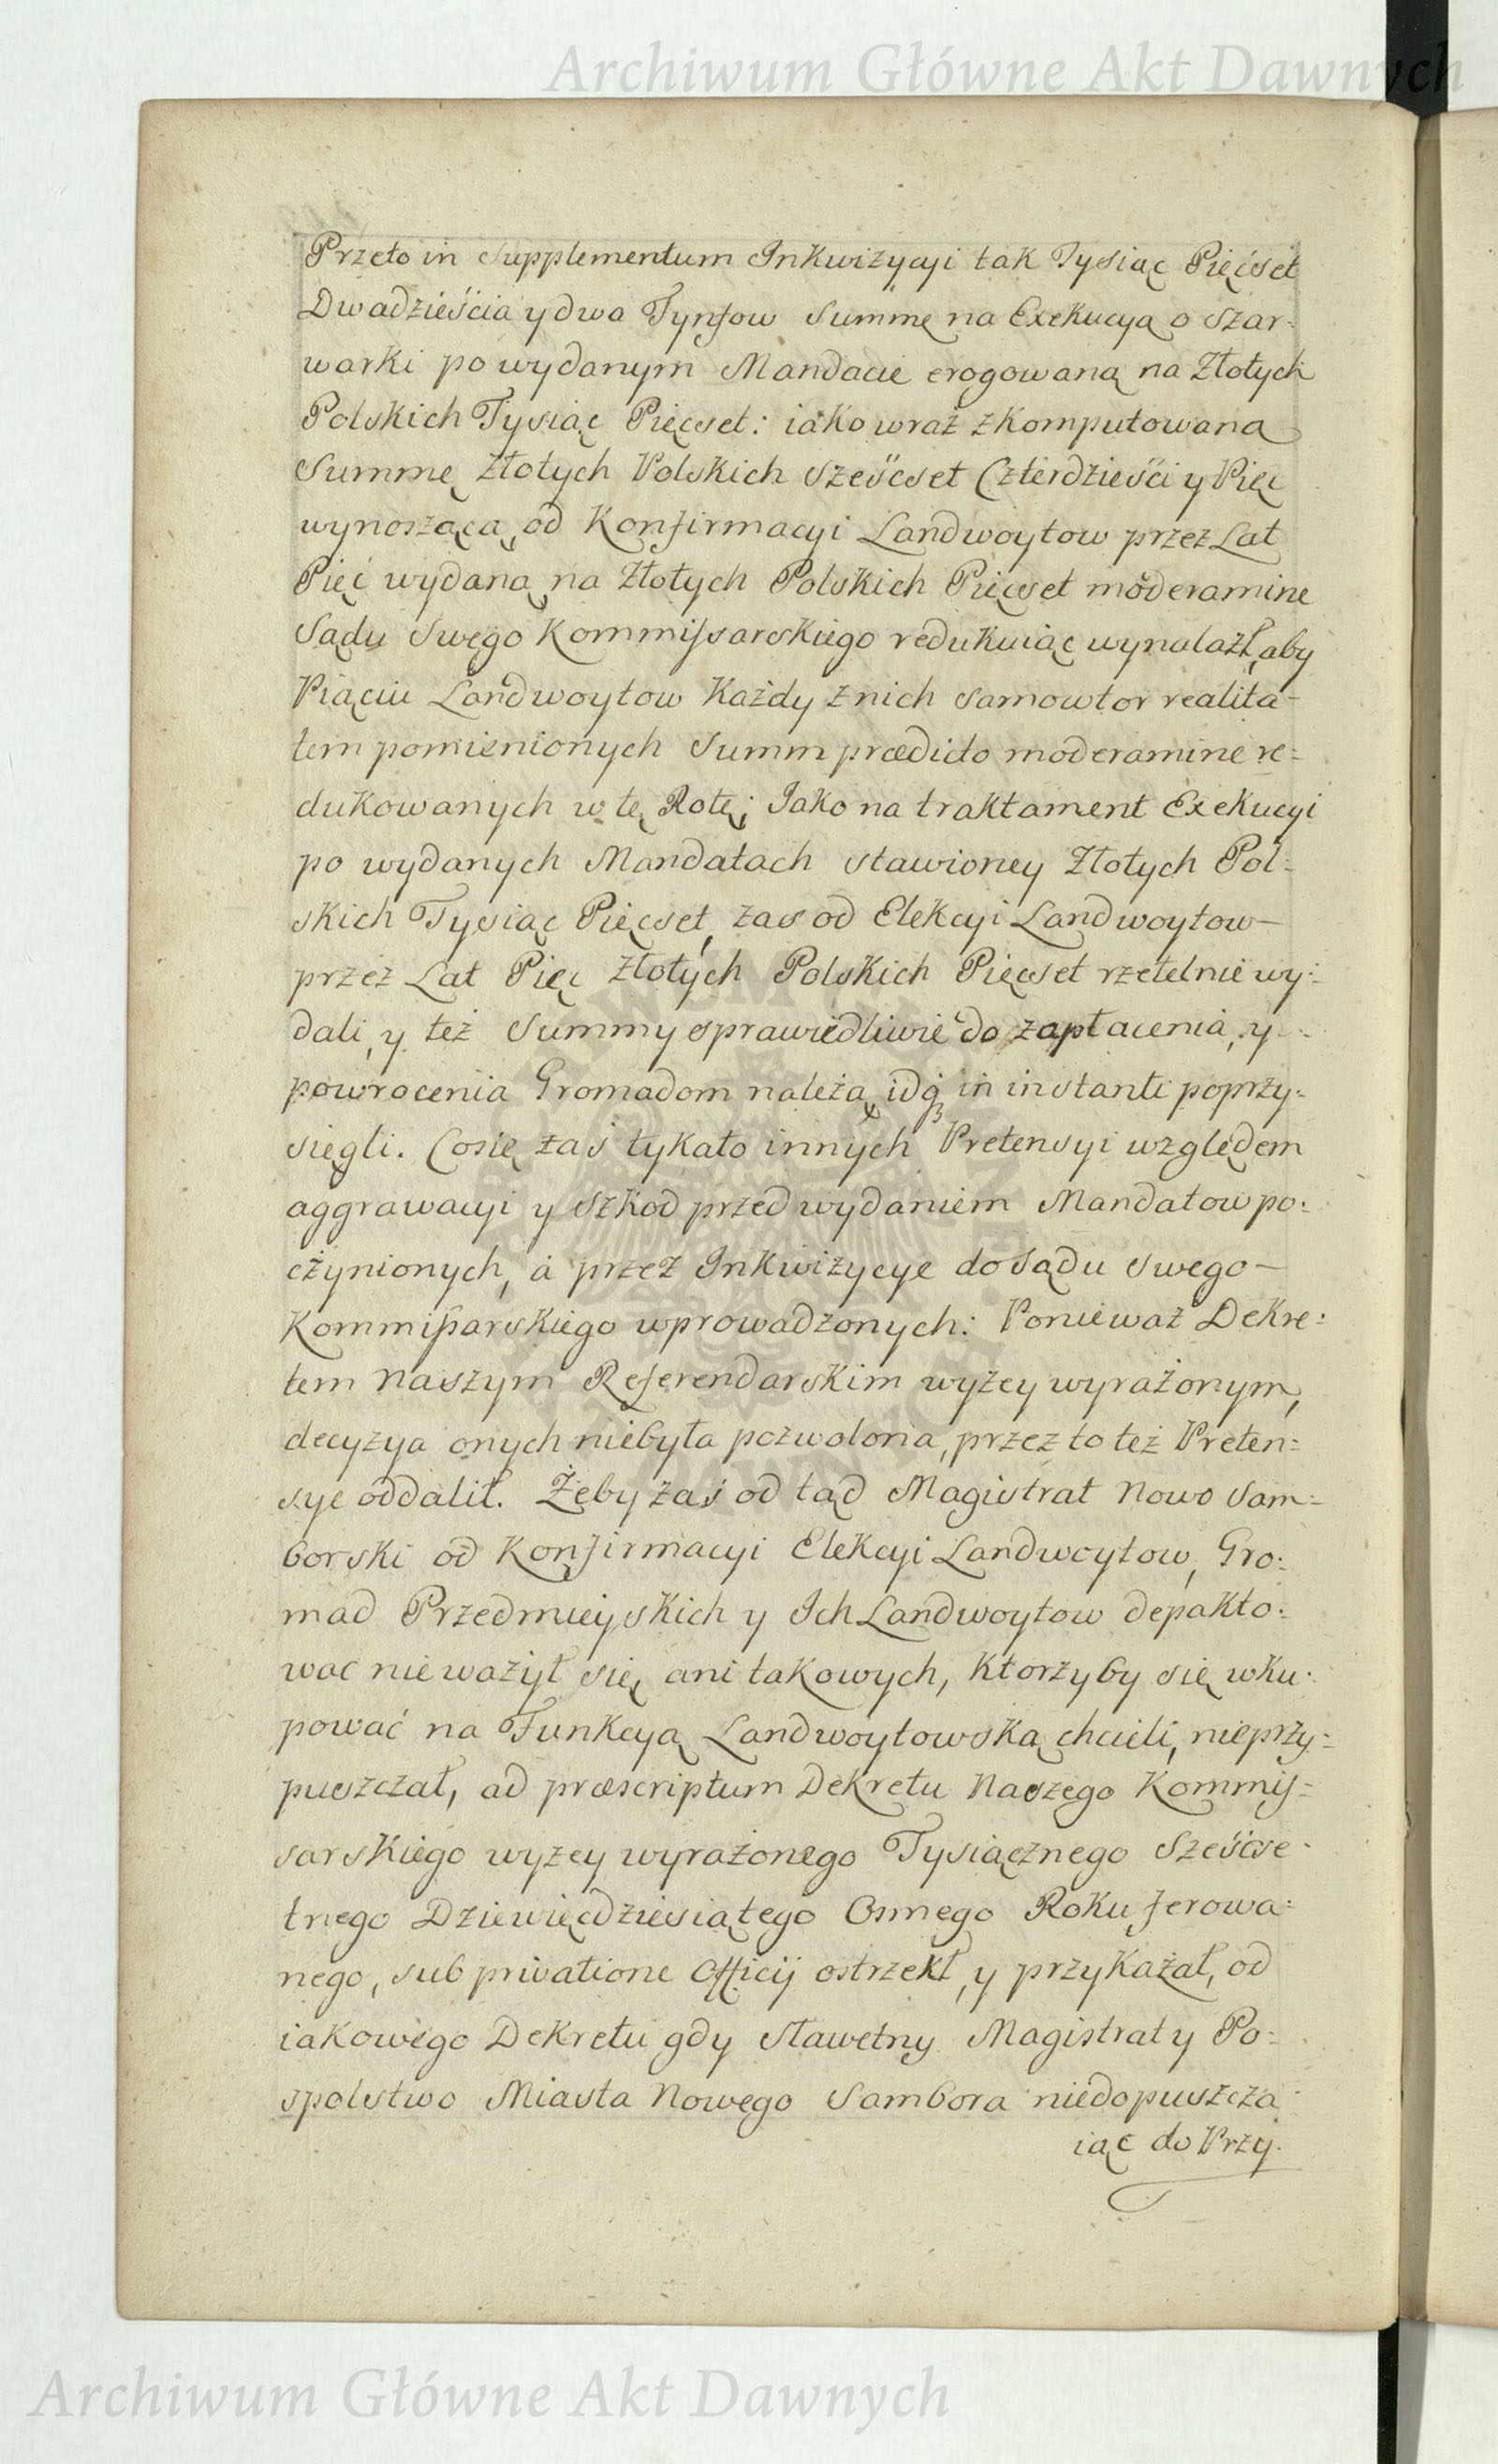 Archiwum Główne Akt Dawnych
Przeto in Supplementum Inkwizycyi tak Tysiąc Pięćset
Dwadzieścia y dwa Tynfow Summę na Exekucyą o Szar=
warki po wydanym Mandacie erogowaną na Złotych
Polskich Tysiąc Pięcset: iako wraz zkomputowaną
Summę Złotych Polskich Sześćset Czterdzieści y Pięc
wynoszącą, od Konfirmacyi Landwoytow przez Lat
Pięć wydaną na Złotych Polskich Pięcset moderamine
Sądu Swego Kommissarskiego redukuiąc wynalazł, aby
Piąciu Landwoytow Każdy z nich samowtor realita=
tem pomienionych Summ prædicto moderamine re=
dukowanych w tę Rotę; Jako na traktament Exekucyi
po wydanych Mandatach stawioney Złotych Pol=
skich Tysiąc Pięcset, zas od Elekcyi Landwoytow—
przez Lat Pięc Złotych Polskich Pięcset rzetelnie wy=
dali, y też Summy sprawiedliwie do zapłacenia, y
powrocenia Gromadom należą, idq3 in instanti poprzy=
sięgli. Co się zaś tykało innych Pretensyi względem
aggrawacyi y Szkod przed wydaniem Mandatow po=
czynionych, a przez Inkwizycye do Sądu Swego—
Kommissarskiego wprowadzonych: Ponieważ Dekre=
tem Naszym Referendarskim wyżey wyrażonym,
decyzya onych niebyła pozwolona, przez to też Preten=
sye oddalił. Żeby zaś od tąd Magistrat Nowo Sam=
borski od Konfirmacyi Elekcyi Landwoytow, Gro=
mad Przedmieyskich y Ich Landwoytow depakto=
wac nie ważył się, ani takowych, Ktorzyby się wku=
pować na Funkcyą Landwoytowską chcieli, nieprzy=
puszczał, ad præscriptum Dekretu Naszego Kommis=
sarskiego wyżey wyrażonego Tysiącznego Sześćse=
tnego Dziewięcdziesiątego Osmego Roku ferowa=
nego, sub privatione Officij ostrzekł, y przykazał, od
iakowego Dekretu gdy Sławetny Magistrat y Po=
spolstwo Miasta Nowego Sambora niedopuszcza
iąc do Przy.
Archiwum Główne Akt Dawnych